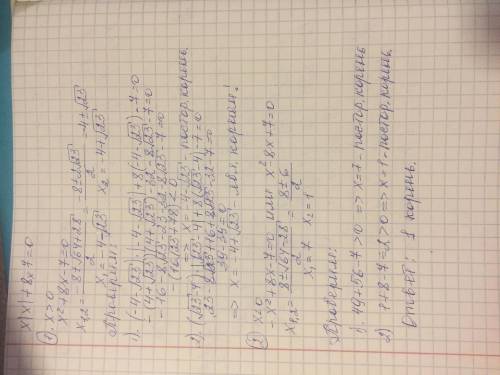 x|x|+8x-7=0
① x>0
x²+8x-7=0
x₁,₂ = (-8±√(64+28))/2 = (-8±2√23)/2 = -4±√23
x₁ = -4-√23 x₂ = -4+√23
Проверим:
1). (-4-√23)·|-4-√23|+8(-4-√23)-7=0
-(4+√23)(4+√23)-32-8√23-7=0
-16-8√23-23-32-8√23-7=0
-(16√23+78)<0
=> x=-4-√23 - постор. корень.
2) (√23-4)|√23-4|+8(√23-4)-7=0
23-8√23+16+8√23-32-7=0
39-39=0
=> x = -4+√23 явл. корнем!
② x<0
-x²+8x-7=0 или x²-8x+7=0
x₁,₂ = (8±√(64-28))/2 = (8±6)/2
x₁=7 x₂=1
Проверим:
1) 49+56-7>0 => x=7 - постор. корень
2) 1+8-7=2>0 => x=1 - постор. корень.
Ответ: 1 корень.